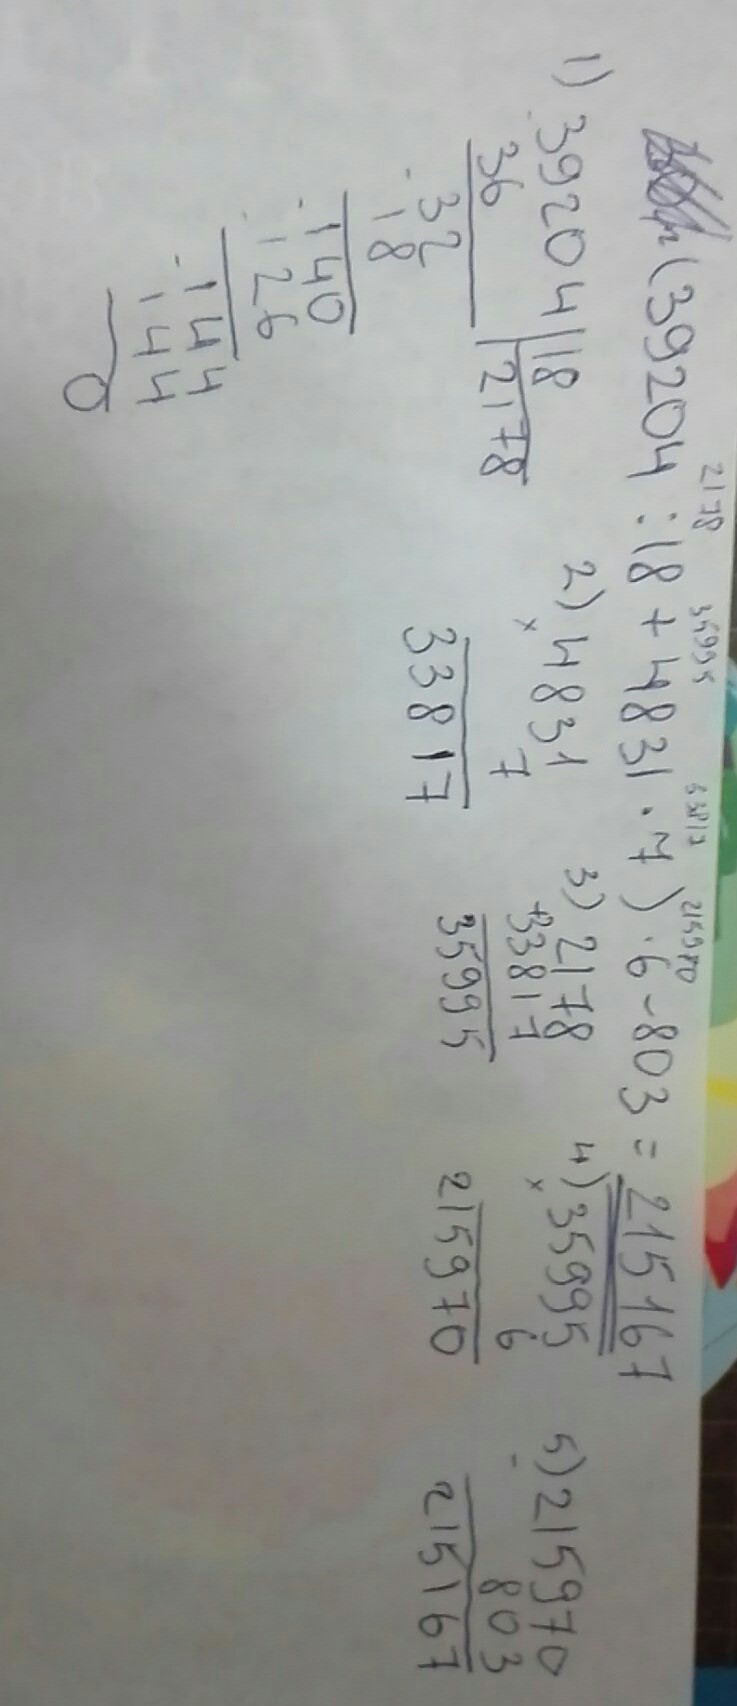 2178 35995 33817 215970
(39204 : 18 + 4831 · 7) · 6 - 803 = 215167
1) 39204 | 18
36 2178
- 32
18
- 140
126
- 144
144
0
2) 4831
× 7
33817
3) 2178
+ 33817
35995
4) 35995
× 6
215970
5) 215970
- 803
215167